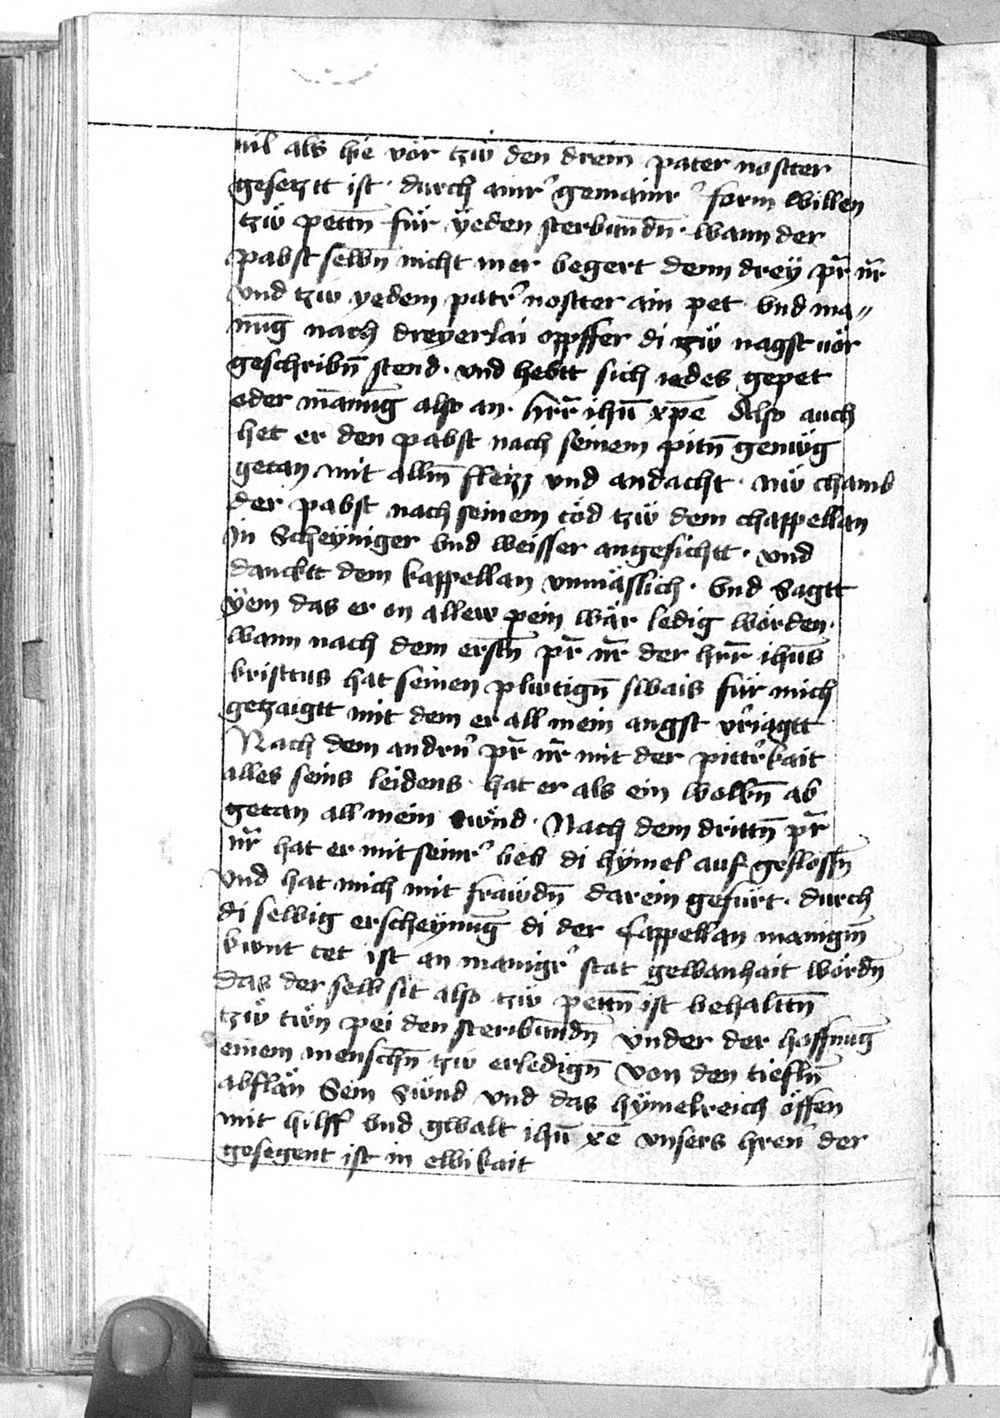 vil als hie vor tzẅ den drein pater noster
gesetztt ist · durch ainr gemainr form willen
tzẅ pettn̄ für yeden sterbundn̄ · wann der
pabst selbn̄ nicht mer begert denn drey pr̄ nr̄
vnd tzw yedem patr noster ain pet vnd ma⸗
nu̅g nach dreyerlai opffer di tzẅ nagst vör
geschribn̄ stend · vnd hebtt sich iedes gepet
oder manu̅g also an · hrr̄ ihū xp̄e Also auch
het er den pabst nach seinem pitn̄ genẅg
getan mit allm̄ fleizz vnd andacht · nẅ chamb
der pabst nach seinem töd tzẅ dem chappellan
in Scheyniger vnd weisser angesichtt · vnd
dancktt dem kappellan vnmässlich · vnd Sagtt
ÿem das er on allew pein wär ledig wörden ·
wann nach dem erstn̄ pr̄ nr̄ der hrr̄ ihūs
kristtus hat seinen plwtign̄ swais für mich
getzaigtt mit dem er all mein angst vriagtt
Nach dem andrn pr̄ nr̄ mit der pittrkait
alles seins leidens · hat er als ein wolkn̄ ab
getan all mein swnd · Nach dem drittn̄ pr̄
nr̄ hat er mit seinr lieb di hÿmel auf geslossn̄
vnd hat mich mit frawdn̄ darein gefürt · durch
di selbig erscheynu̅g di der Cappellan manigm̄
kwnt tet ist an manigr stat gewanhait wördn̄
das der selb sit also tzẅ pettn̄ ist behaltn̄
tzẅ twn pei den sterbundn̄ vnder der hoffnu̅g
einem menschn̄ tzw erledign̄ von den tiefln̄
ablän Sein Swnd vnd das hÿmelreich öffen
mit hilff vnd gwalt ihū xē vnsers hren der
gesegent ist in ewikait